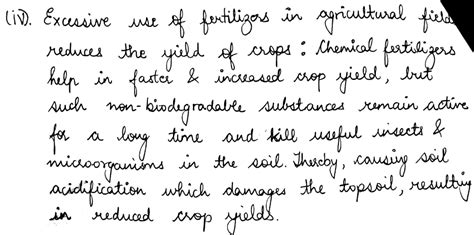 (iv). Excessive use of fertilizers in agricultural field
reduces the yield of crops : Chemical fertilizers
help in faster & increased crop yield, but
such non-biodegradable substances remain active
for a long time and kill useful insects &
microorganisms in the soil. Thereby, causing soil
acidification which damages the topsoil, resulting
in reduced crop yields.